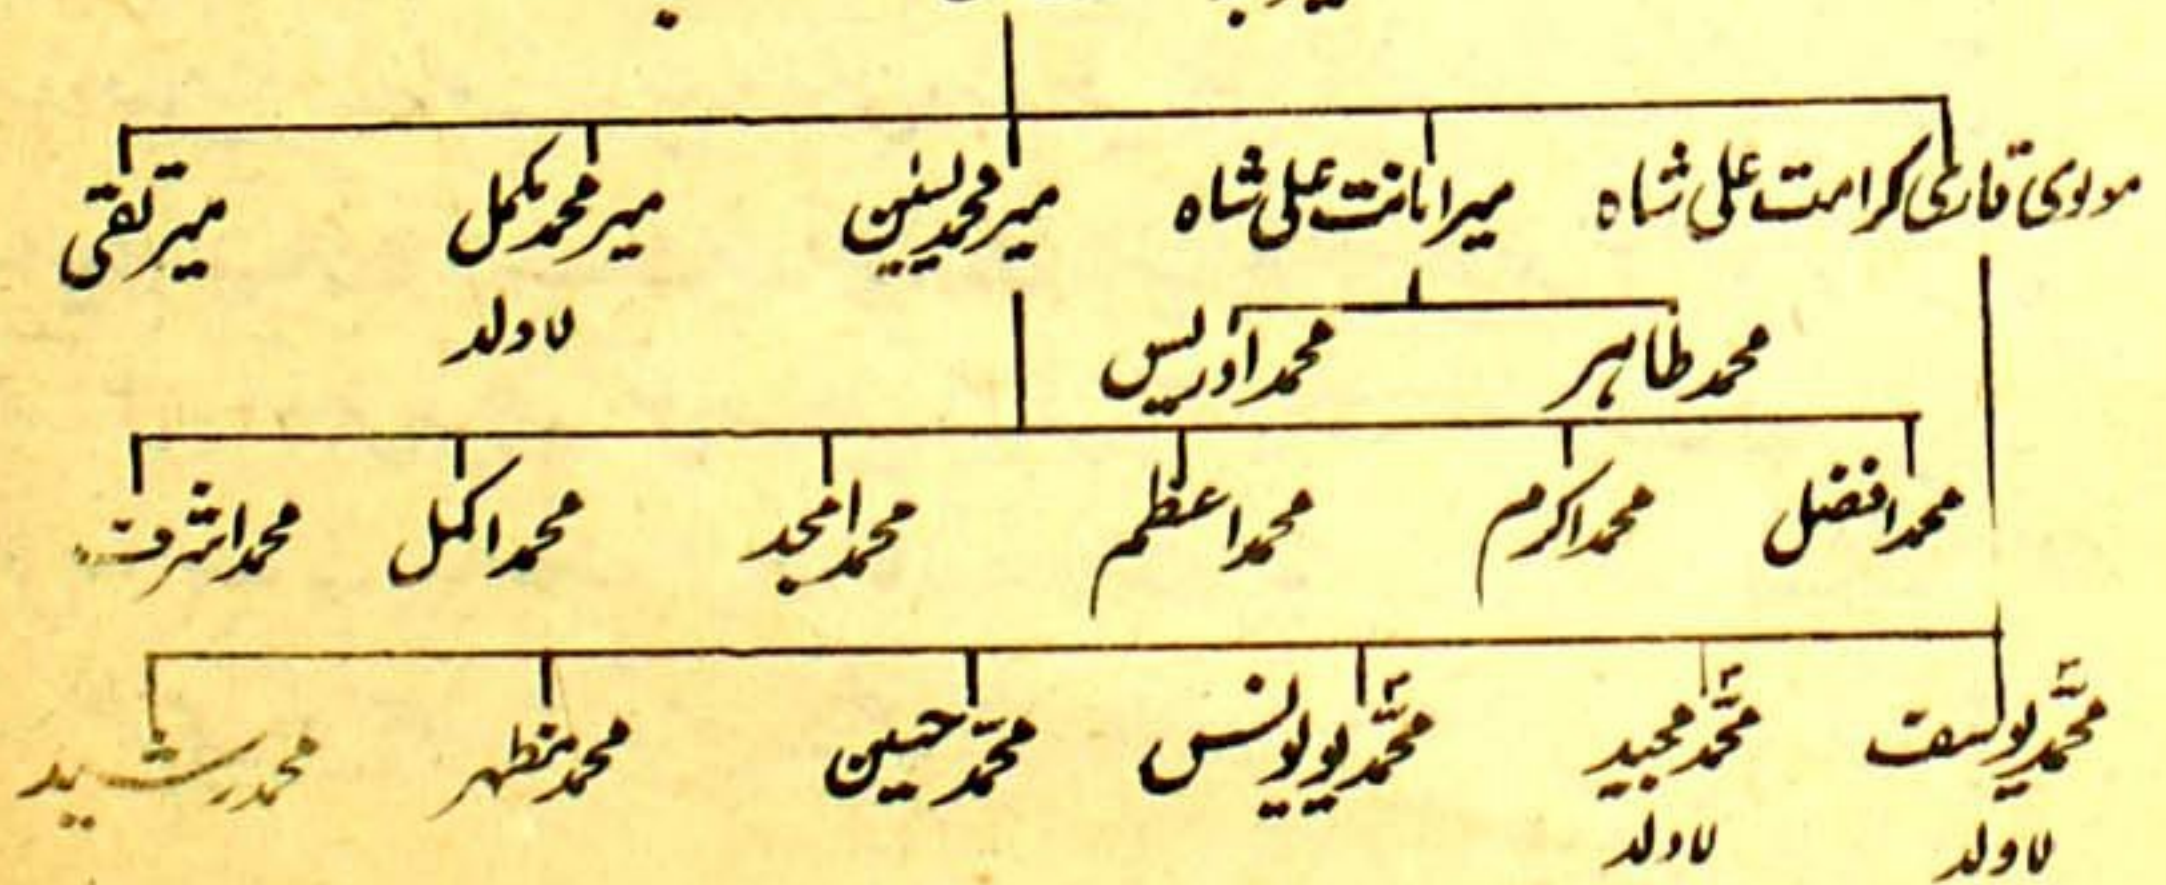 مولوی قاری کرامت علی شاہ میر امانت علی شاہ میر محمد یٰسین میر محمد مکمل میر تقی
لاولد
محمد طاہر محمد ادریس
محمد افضل محمد اکرم محمد اعظم محمد امجد محمد اکمل محمد اشرف
محمد یوسف محمد مجید محمد یونس محمد حسین محمد مظہر محمد رشید
لاولد لاولد